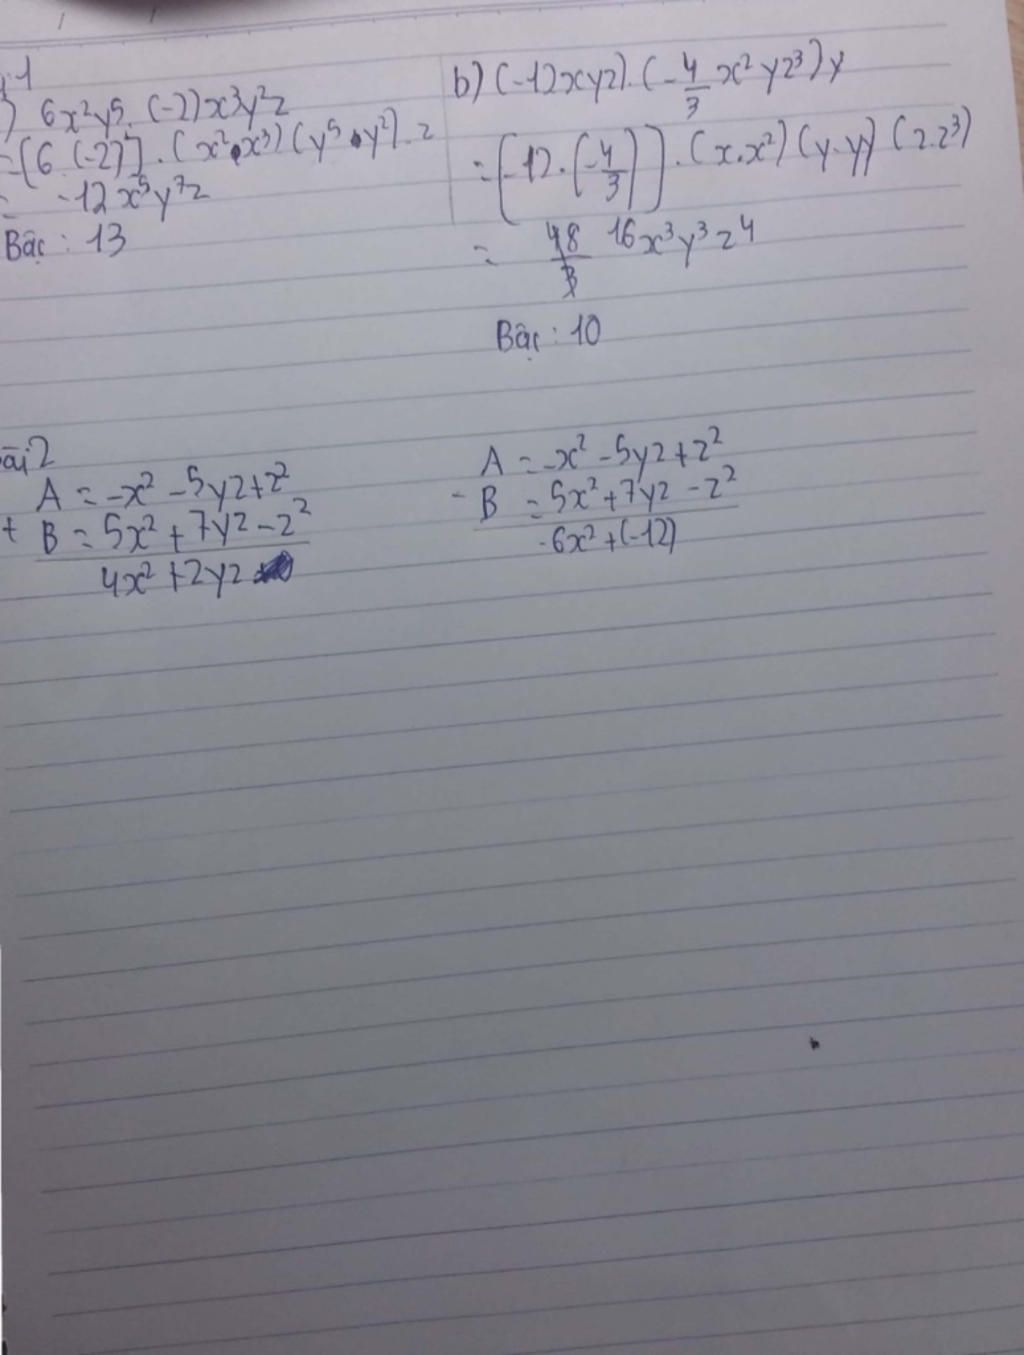 1
) 6x²y⁵. (-2)x³y²z
= [6.(-2)]. (x².x³)(y⁵.y²).z
= -12x⁵y⁷z
Bậc : 13
b) (-12xyz).(-4/3 x²yz³)y
= [-12.(-4/3)].(x.x²)(y.yy)(z.z³)
= 48/3 16x³y³z⁴
Bậc : 10
bài 2
A = -x² - 5yz + z²
+ B = 5x² + 7yz - z²
4x² + 2yz
A = -x² - 5yz + z²
- B = 5x² + 7yz - z²
-6x² + (-12)